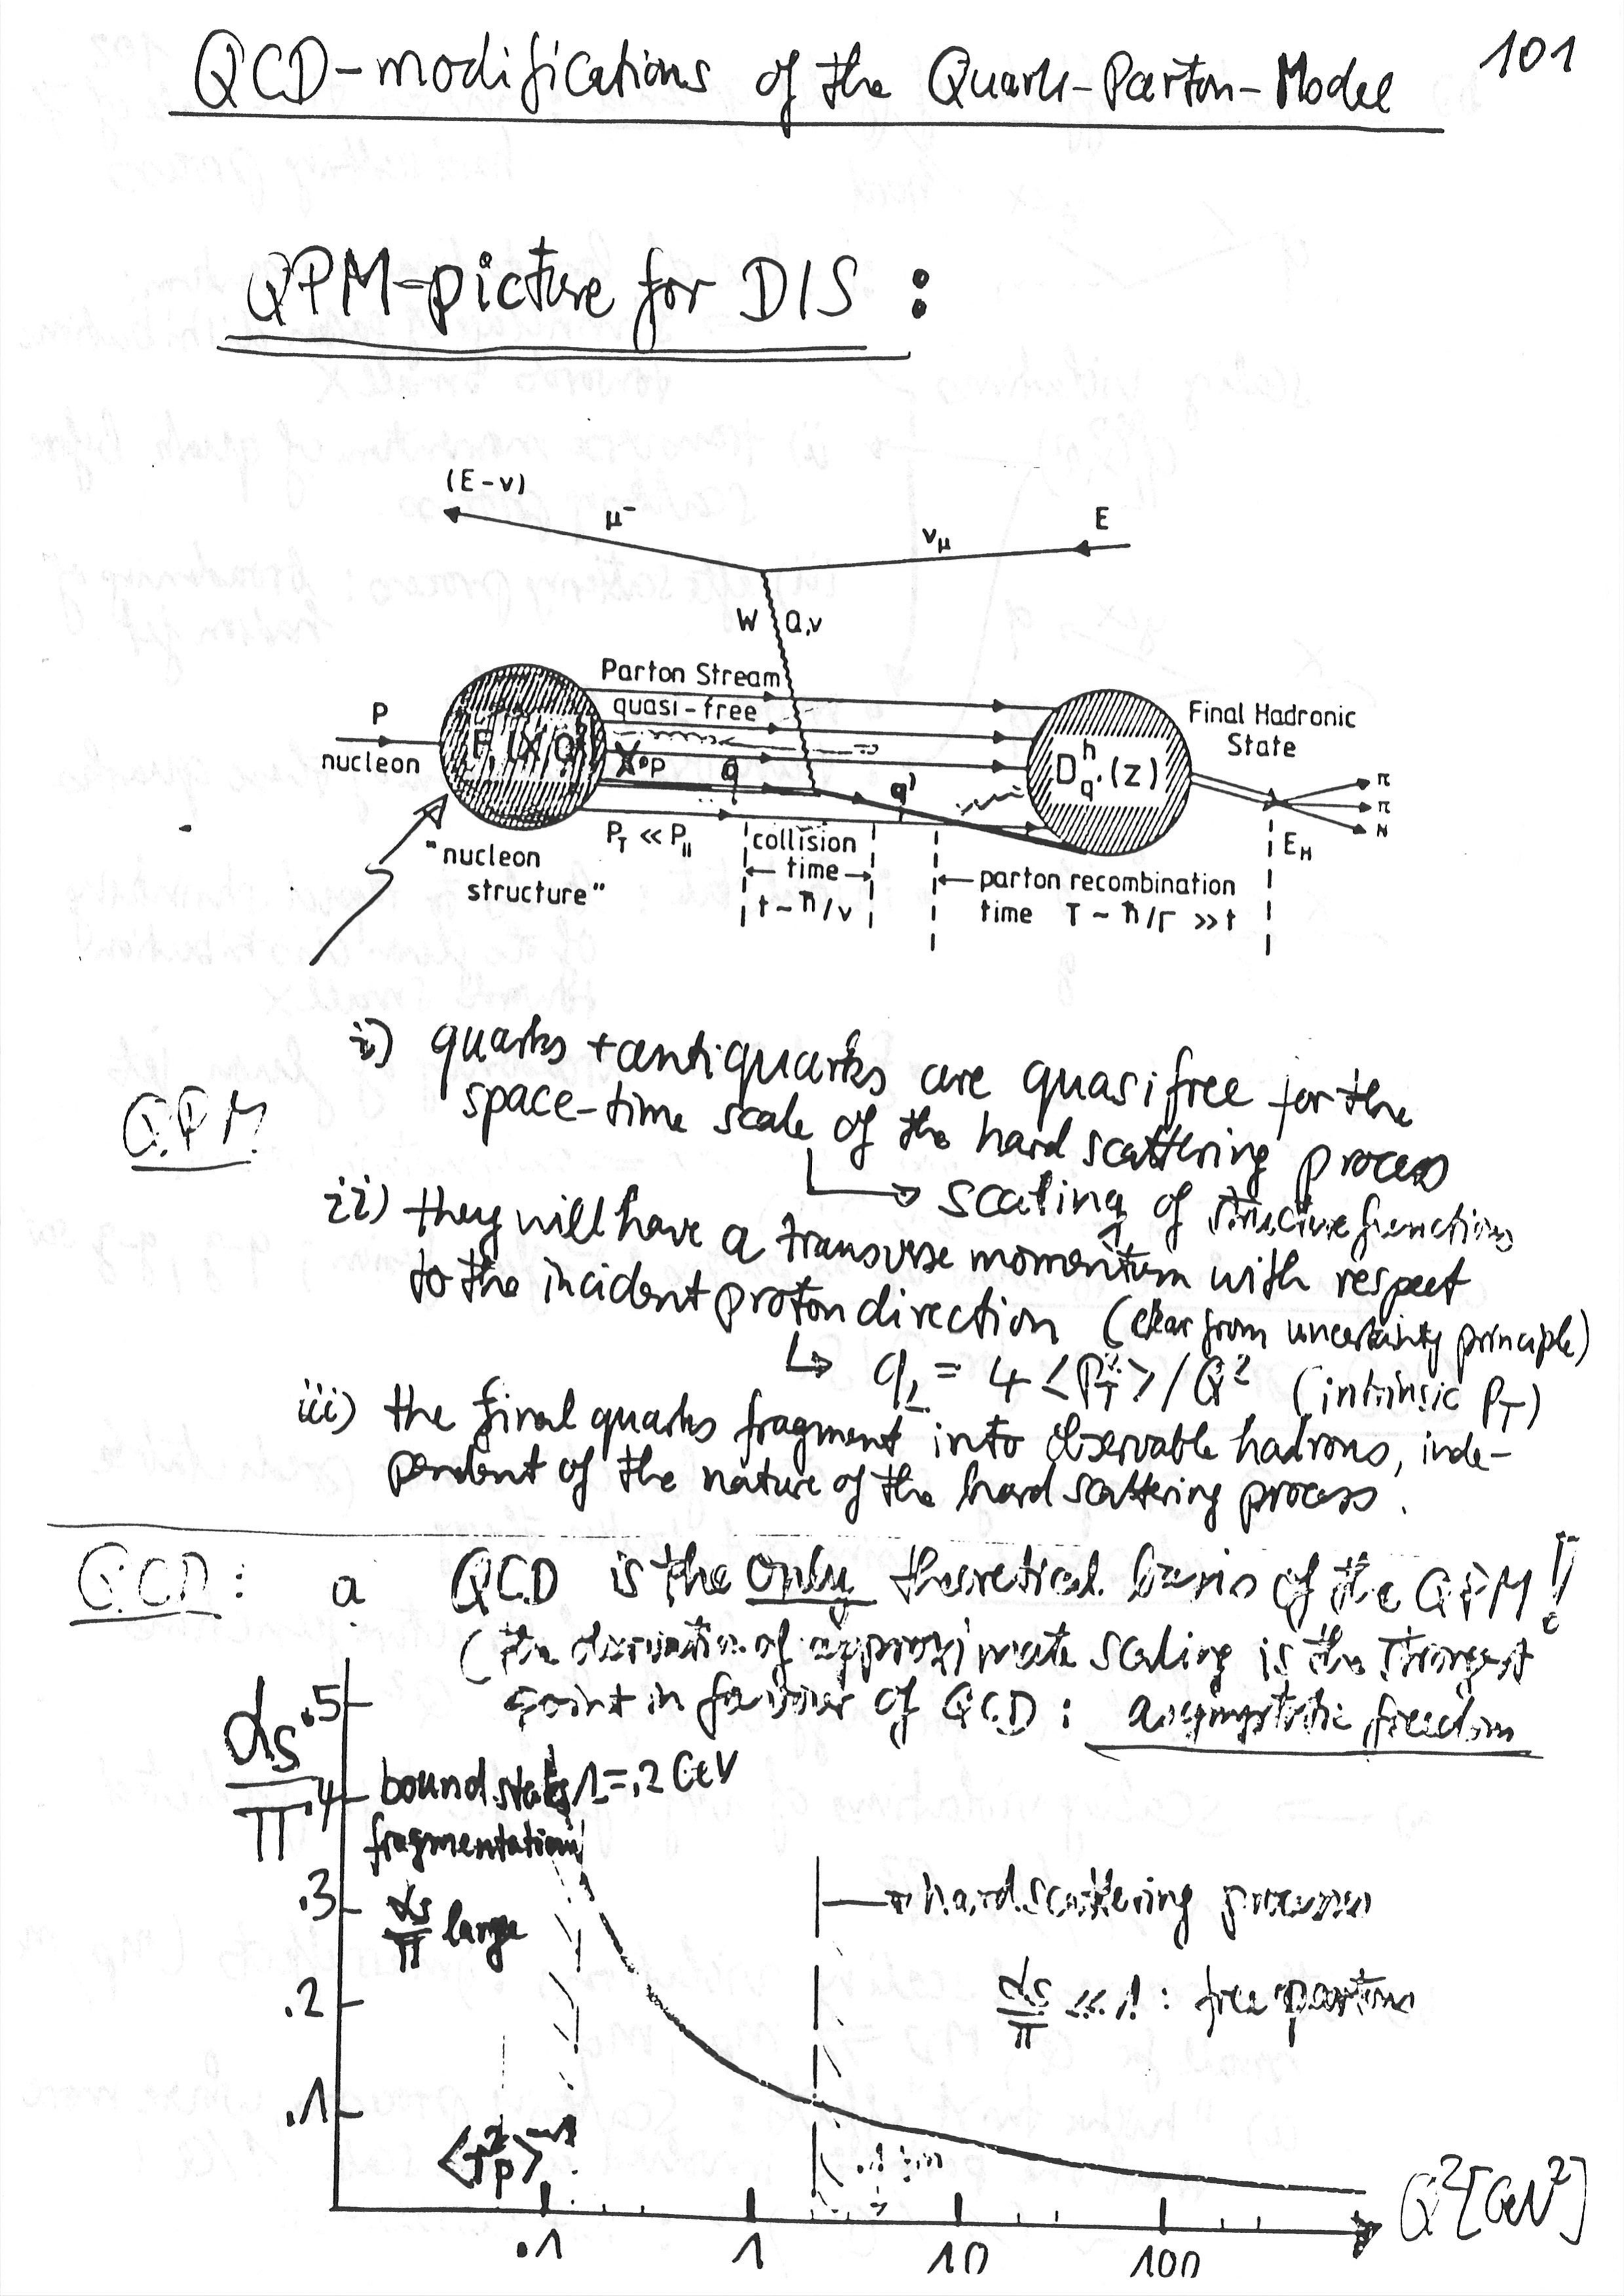 QCD-modifications of the Quark-Parton-Model 101
QPM-picture for DIS :
(E-ν)
μ⁻
ν_μ
E
W Q,ν
Parton Stream
quasi-free
P
nucleon
X·P
q
q'
D_q'^h(z)
Final Hadronic
State
π
π
N
E_H
P_T ≪ P_∥
"nucleon
structure"
collision
time
t ~ ħ/ν
parton recombination
time T ~ ħ/Γ ≫ t
QPM
i) quarks + antiquarks are quasifree for the
space-time scale of the hard scattering process
↳ scaling of structure functions
ii) they will have a transverse momentum with respect
to the incident proton direction (clear from uncertainty principle)
↳ q_L = 4 <P_T²>/Q² (intrinsic P_T)
iii) the final quarks fragment into observable hadrons, inde-
pendent of the nature of the hard scattering process.
QCD: a QCD is the only theoretical basis of the QPM!!
(the derivation of approximate scaling is the strongest
point in favour of QCD: asymptotic freedom
α_s/π
.5
.4
.3
.2
.1
bound states Λ=.2 GeV
fragmentation
α_s/π large
→ hard scattering processes
α_s/π ≪ 1 : free partons
<r_p²>⁻¹
.1 1 10 100
Q² [GeV²]